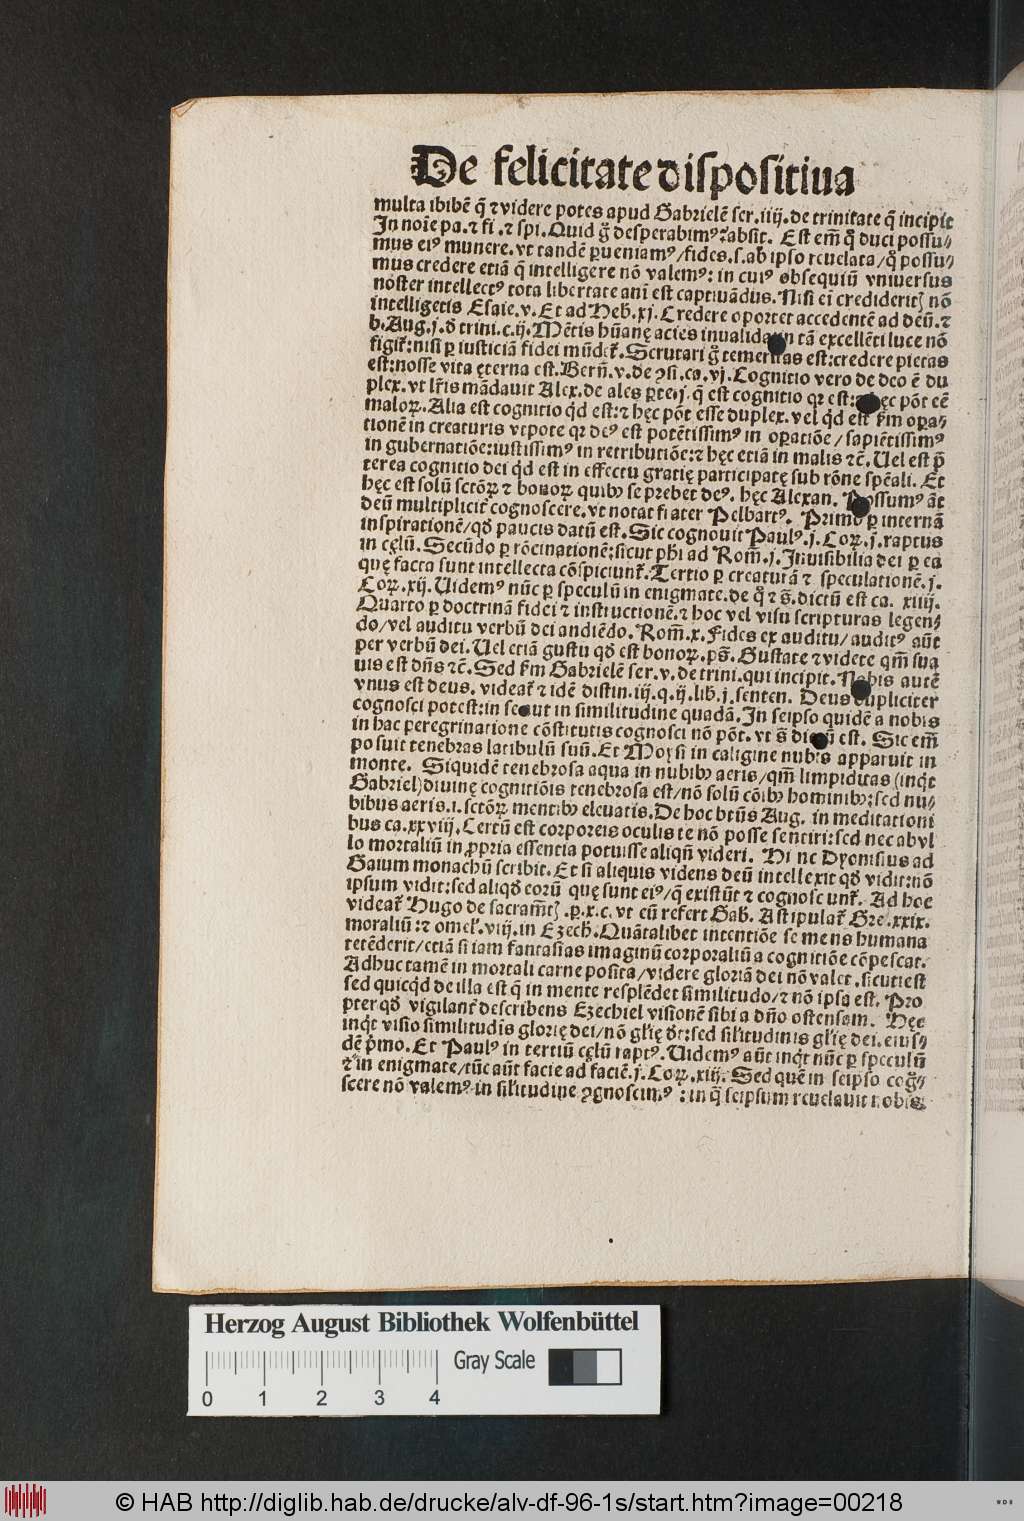 De felicitate dispositiua
multa ibibē q̄ ⁊ videre potes apud Gabrielē ser.iiij.de trinitate q̄ incipit
In noīe pa.⁊ fi.⁊ spi.Quid g̊ desperabimꝰ?absit. Est em̄ qͦ duci possu⸗
mus eiꝰ munere.vt tandē ꝑueniamꝰ/fides.s.ab ipso reuelata/qͦ possu⸗
mus credere etiā q̄ intelligere nō valemꝰ: in cuiꝰ obsequiū vniuersus
noster intellectꝰ tota libertate anī est captiuādus. Nisi eī credideritꝭ nō
intelligetis Esaie.v.Et ad Heb̄.xj.Credere oportet accedentē ad deū.⁊
b.Aug.j.đ trini.c.ij.Mētis hūanę acies inualida in tā excellēti luce nō
figit᷑:nisi ꝑ iusticiā fidei mūdet᷑.Scrutari g̊ temeritas est:credere pietas
est:nosse vita ęterna est.Berñ.v.de ꝯsi.ca.vj.Cognitio vero de deo ē du
plex.vt lr̄is mādauit Alex.de ales ꝑte.j.q̄ est cognitio qꝛ est: hęc pōt eē
maloꝝ.Alia est cognitio qͥd est:⁊ hęc pōt esse duplex.vel qͥd est ẜm oꝑa⸗
tionē in creaturis vtpote qꝛ deꝰ est potētissimꝰ in oꝑatiōe/sapiētissimꝰ
in gubernatiōe:iustissimꝰ in retributiōe:⁊ hęc etiā in malis ⁊c̄.Uel est p̄
terea cognitio dei qͥd est in effectu gratię participatę sub rōne spēali. Et
hęc est solū sctōꝝ ⁊ bonoꝝ quibꝰ se prebet deꝰ. hęc Alexan. Possumꝰ āt
deū multiplicit᷑ cognoscere.vt notat frater Pelbartꝰ. Primo ꝑ internā
inspirationē/qđ paucis datū est.Sic cognouit Paulꝰ.j.Coꝝ.j.raptus
in cęlū.Secūdo ꝑ rōcinationē:sicut phi ad Rom̄.j.Inuisibilia dei ꝑ ea
quę facta sunt intellecta cōspiciunt᷑.Tertio ꝑ creaturā ⁊ speculationē.j.
Coꝝ.xij.Uidemꝰ nūc ꝑ speculū in enigmate.de qͦ ⁊ s̄.dictū est ca. xiiij.
Quarto ꝑ doctrinā fidei ⁊ instructionē.⁊ hoc vel visu scripturas legen⸗
do/vel auditu verbū dei andiēdo.Rom̄.x.Fides ex auditu/auditꝰ aūt
per verbū dei.Uel etiā gustu qđ est bonoꝝ.ps̄.Gustate ⁊ videte qm̄ sua
uis est dn̄s ⁊c̄.Sed ẜm Gabrielē ser.v.de trini.qui incipit.Nobis autē
vnus est deus. videat᷑ ⁊ idē distin.iij.q.ij.lib.j.senten. Deus dupliciter
cognosci potest:in se aut in similitudine quadā.In seipso quidē a nobis
in hac peregrinatione cōstitutis cognosci nō pōt.vt s̄ dictū est. Sic em̄
posuit tenebras latibulū suū.Et Moysi in caligine nubis apparuit in
monte. Siquidē tenebrosa aqua in nubibꝰ aeris/qm̄ limpiditas (inqͥt
Gabriel)diuinę cognitiōis tenebrosa est/nō solū cōibꝰ hominibꝰ:sed nu⸗
bibus aeris.i.sctōꝝ mentibꝰ eleuatis.De hoc btūs Aug. in meditationi
bus ca.xxviij.Certū est corporeis oculis te nō posse sentiri:sed nec ab vl
lo mortaliū in ꝓpria essentia potuisse aliqn̄ videri. Hinc Dyonisius ad
Gaium monachū scribit.Et si aliquis videns deū intellexit qđ vidit:nō
ipsum vidit:sed aliqđ eorū quę sunt eiꝰ/q̄ existūt ⁊ cognoscunt᷑. Ad hoc
videat᷑ Hugo de sacramt̄ꝭ.ꝑ.x.c. vt cū refert Gab̄. Astipulat᷑ Gre.xxix.
moraliū:⁊ omel᷑.viij.in Ezech̄.Quātalibet intentiōe se mens humana
tetēderit/etiā si iam fantasias imaginū corporaliū a cognitiōe cōpescat.
Adhuc tamē in mortali carne posita/videre gloriā dei nō valet.sicuti est
sed quicqͥd de illa est q̄ in mente resplēdet similitudo/⁊ nō ipsa est. Pro
pter qđ vigilant᷑ describens Ezechiel visionē sibi a dn̄o ostensam. Hęc
inqͥt visio similitudīs glorię dei/nō gl̄ię đt:sed sil̄itudinis gl̄ię dei.eius⸗
dē pͥmo.Et Paulꝰ in tertiū cęlū raptꝰ.Uidemꝰ aūt inqͥt nūc ꝑ speculū
⁊ in enigmate/tūc aūt facie ad faciē.j.Coꝝ.xiij.Sed quē in seipso cog̊⸗
scere nō valemꝰ in sil̄itudine ꝯgnoscimꝰ : in q̄ seipsum reuelauit nobis
Herzog August Bibliothek Wolfenbüttel
Gray Scale
0 1 2 3 4
© HAB http://diglib.hab.de/drucke/alv-df-96-1s/start.htm?image=00218